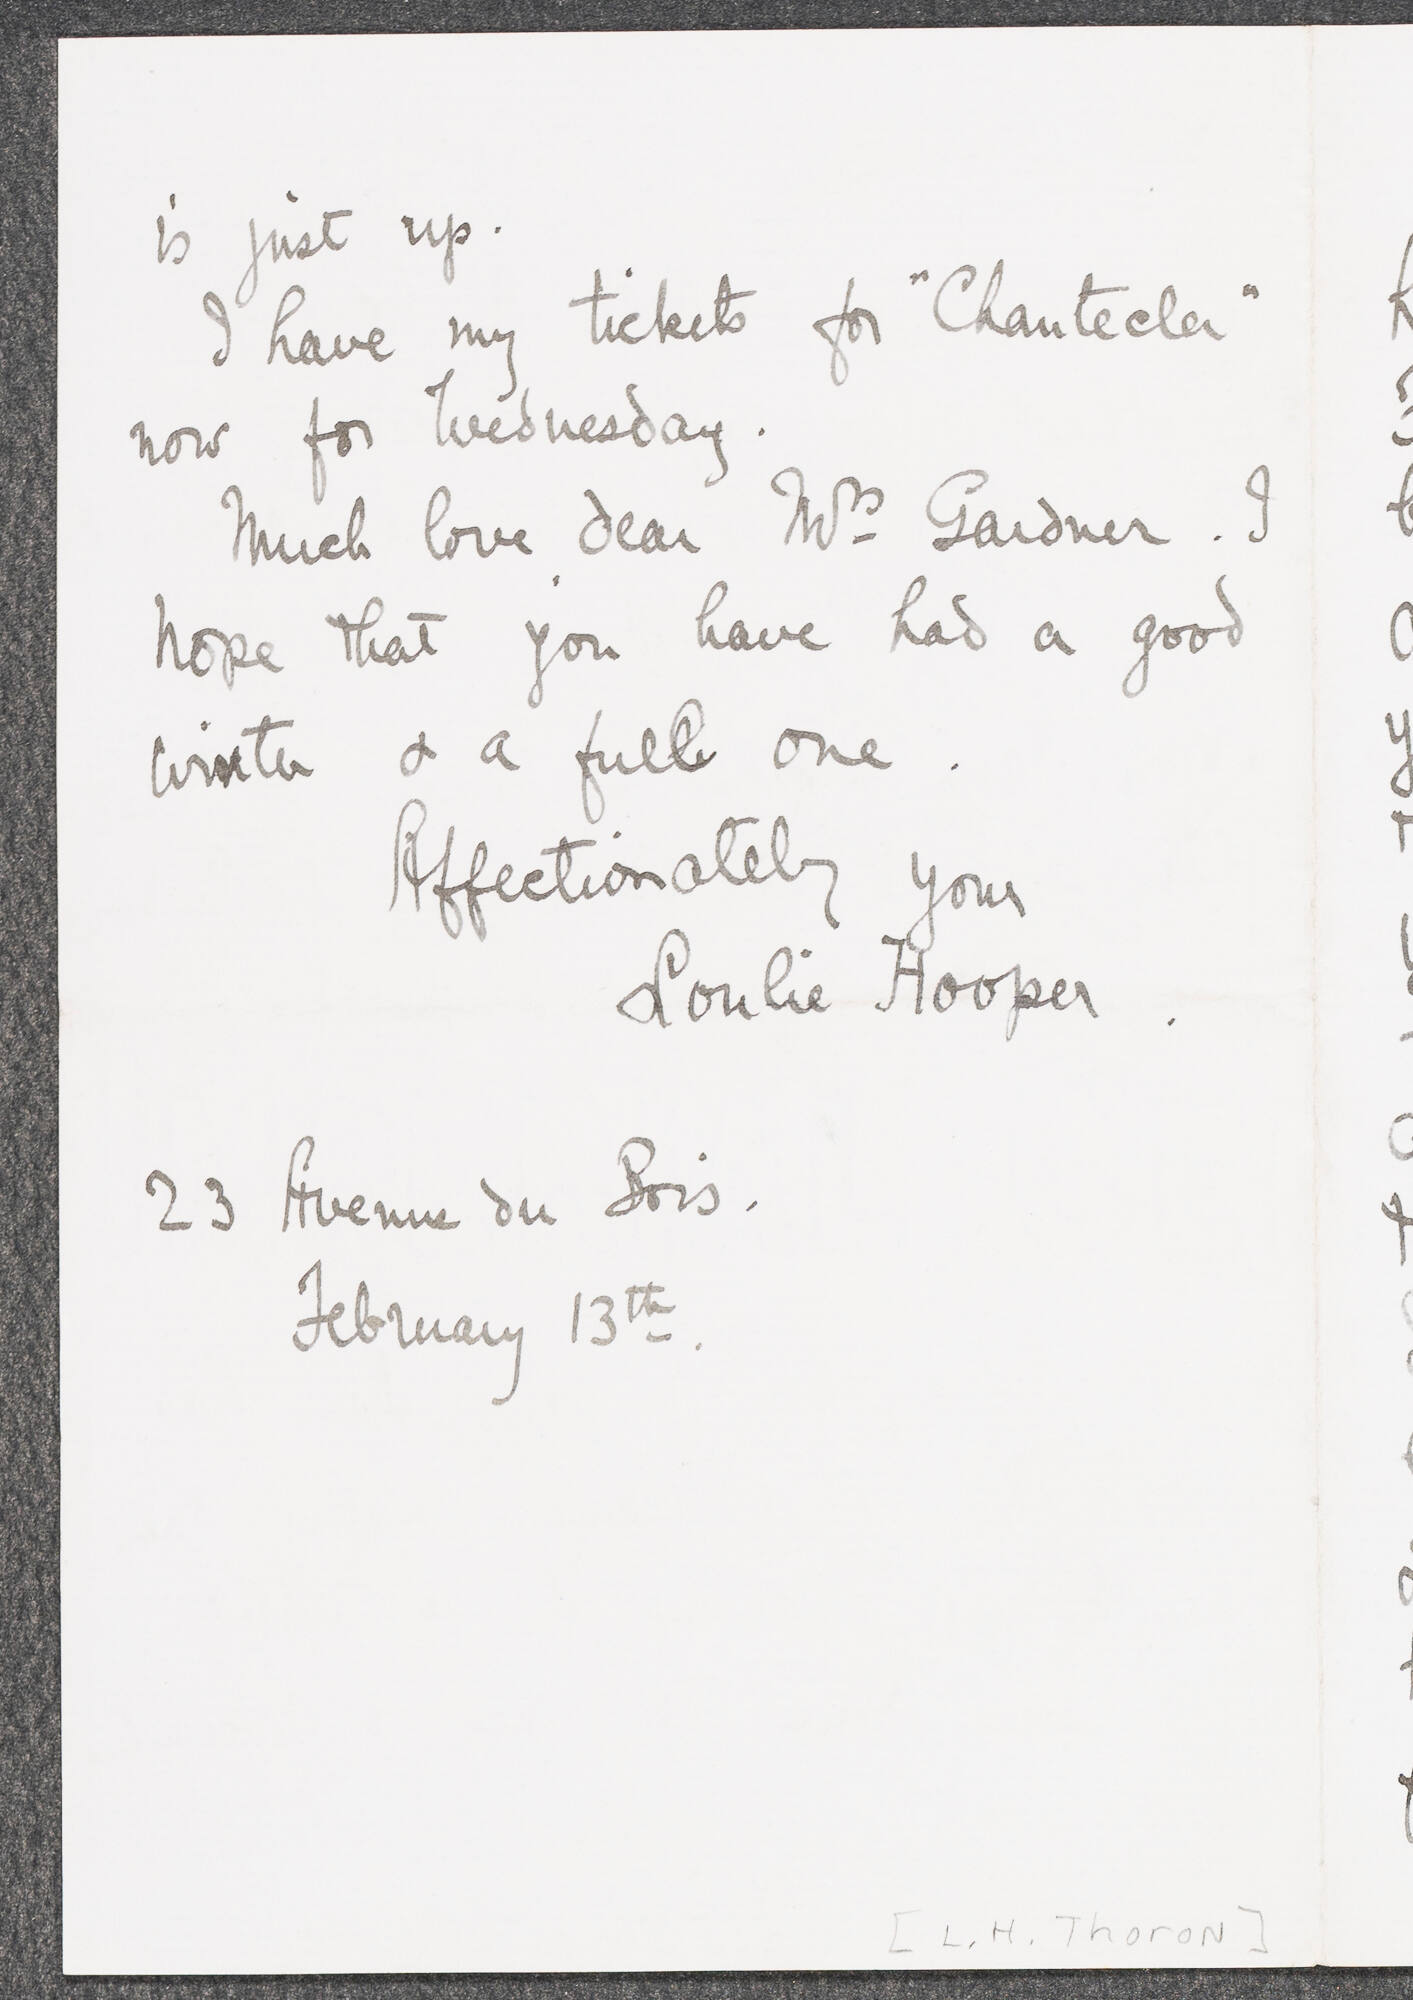 is just up.
I have my tickets for "Chantecler"
now for Wednesday.
Much love dear Mrs Gardner. I
hope that you have had a good
winter & a full one.
Affectionately yours
Loulie Hooper.
23 Avenue du Bois.
February 13th.
[L.H. Thoron]